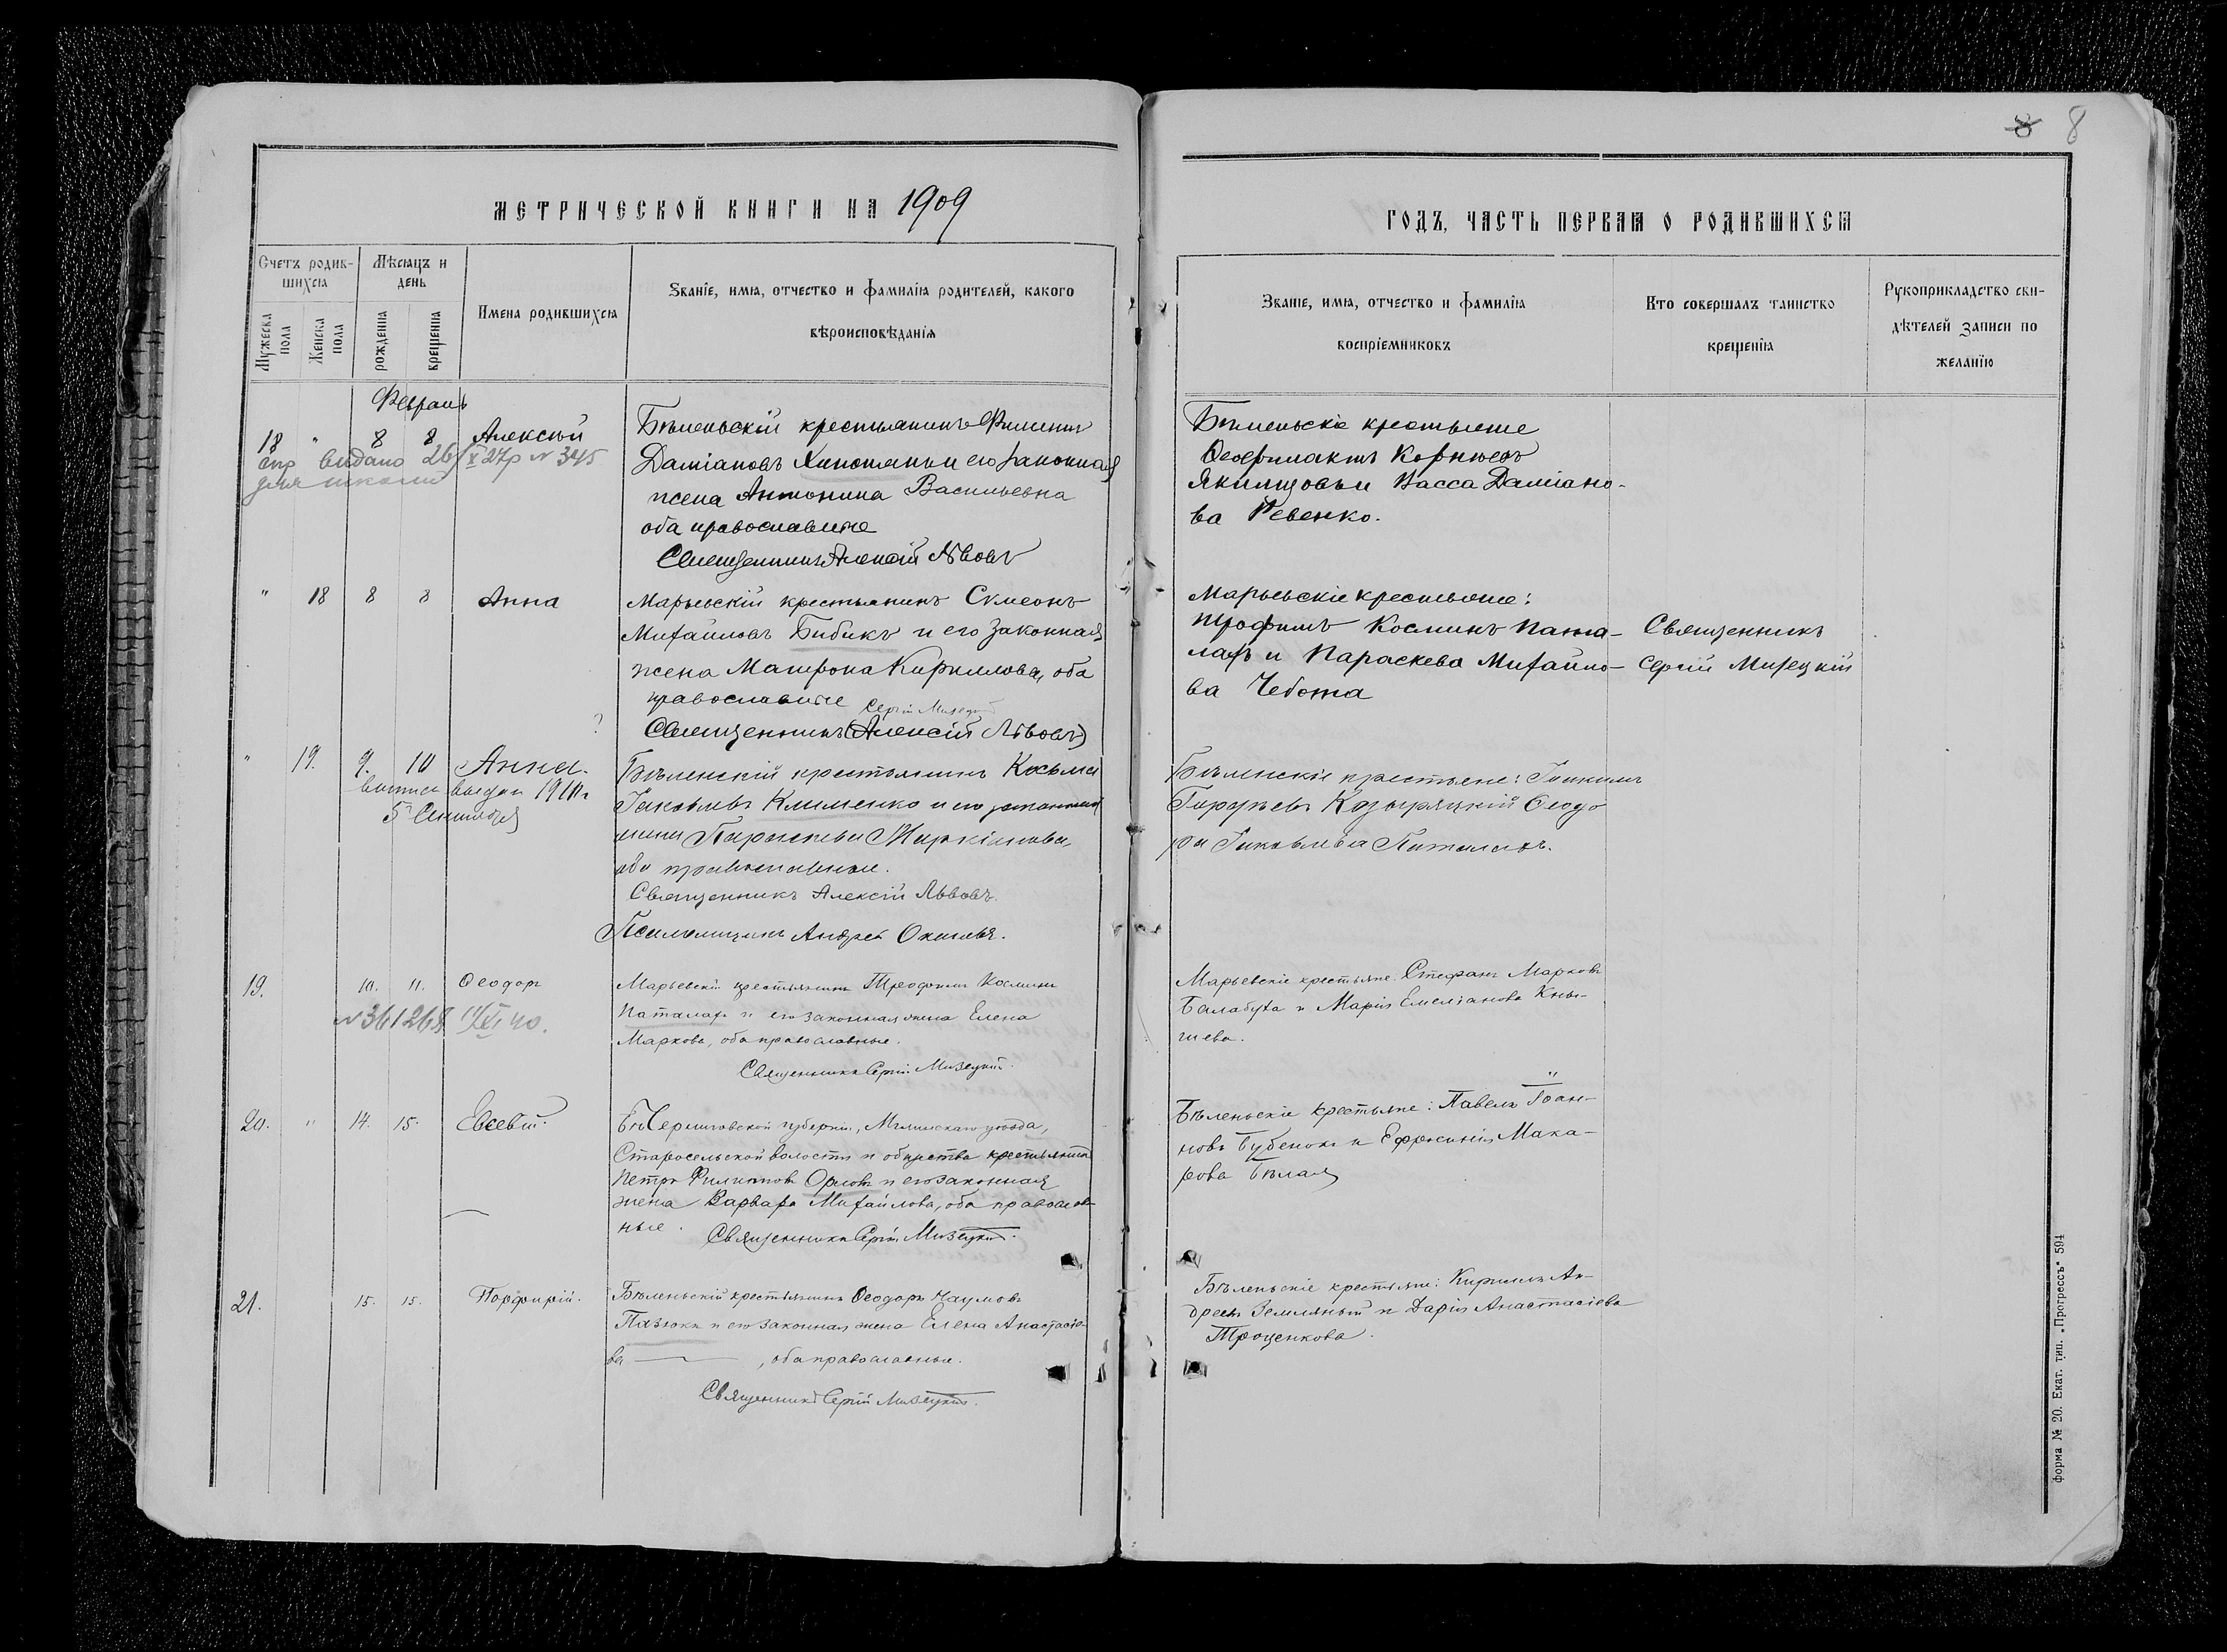 8 8
МЕТРИЧЕСКОЙ КНИГИ НА 1909
ГОДЪ, ЧАСТЬ ПЕРВАЯ О РОДИВШИХСЯ
Счетъ родив-
шихся
Мужеска пола
Женска пола
Мѣсяцъ и
день
рожденія
крещенія
Имена родившихся
Званіе, имя, отчество и фамилія родителей, какого
вѣроисповѣданія
Званіе, имя, отчество и фамилія
воспріемниковъ
Кто совершалъ таинство
крещенія
Рукоприкладство сви-
дѣтелей записи по
желанію
Февраль
18 " 8 8 Алексѣй
видано 26/X 27р № 345
для школи
Бѣленьскій крестьянинъ Филиппъ
Даміановъ и его законная
жена Антонина Васильевна
оба православные
Священникъ Алексій Львовъ
Бѣленьскіе крестьяне
Корнѣевъ
и Васса Даміано-
ва Ревенко.
" 18 8 8 Анна
Марьевскій крестьянинъ Сѵмеонъ
Михайловъ Бибикъ и его законная
жена Матрона Кириллова, оба
православные Сергій Мизецкій
Священникъ (Алексій Львовъ)
?
Марьевскіе крестьяне:
Трофимъ Косминъ Пата-
лахъ и Параскева Михайло-
ва Чебота
Священникъ
Сергій Мизецкій
" 19. 9. 10 Анна.
выпись выдан 1910 г
5 Сентября
Бѣленскій крестьянинъ Косьма
Іаковлевъ Клименко и его законная
жена Параскева Маркіанова,
оба православные.
Священникъ Алексій Львовъ.
Псаломщикъ Андрей
Бѣленскіе крестьяне: Іоакимъ
Ѳеодо
ра Іаковлева Паталахъ.
19. 10. 11. Ѳеодоръ
№ 361268 40.
Марьевскій крестьянинъ Трофимъ Косминъ
Паталахъ и его законная жена Елена
Маркова, оба православные.
Священникъ Сергій Мизецкій.
Марьевскіе крестьяне: Стефанъ Марковъ
Балабуха и Марія Емеліанова Кня-
гиева.
20. " 14. 15. Евсевій.
Черниговской губерніи, Мглинскаго уѣзда,
Старосельской волости и общества крестьянинъ
Петръ Филипповъ Орловъ и его законная
жена Варвара Михайлова, оба православ-
ные.
Священникъ Сергій Мизецкій.
"
Бѣленьскіе крестьяне: Павелъ Іоан-
новъ Бубенокъ и Ефросинія Мака-
рова Бѣлая
21. 15. 15. Порфирій.
Бѣленьскій крестьянинъ Ѳеодоръ Наумовъ
Пазюкъ и его законная жена Елена Анастасіе-
ва , оба православные.
Священникъ Сергій Мизецкій.
Бѣленьскіе крестьяне: Кириллъ Ан-
дреевъ Земляный и Дарія Анастасіева
Троценкова.
форма № 20. Екат. тип. „Прогрессъ" 594